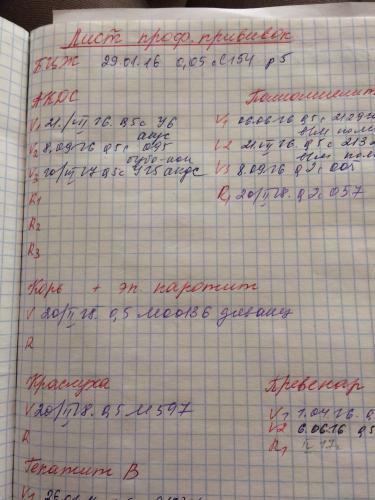 Лист проф. прививок
БЦЖ 29.01.16 0,05 с154 р5
АКДС
V1 21./VII 16. 0,5 с 46
акдс
V2 8.09.16 0,5 с 095
бубо-кок
V3 20/II 17 0,5 с У15 акдс
R1
R2
R3
Полиомиелит
V1 06.06.16 0,5 с
V2 21.VII 16. 0,5 с 213
V3 8.09.16 0,2 с 005
R1 20/II 18. 0,2 с 057
Корь + эп паротит
V 20/II 18. 0,5 М00136 дивакц
R
Краснуха
V 20/II 18. 0,5 М597
R
Превенар
V1 1.04.16
V2 6.06.16 0,5
R1
Гепатит В
V1 26.01